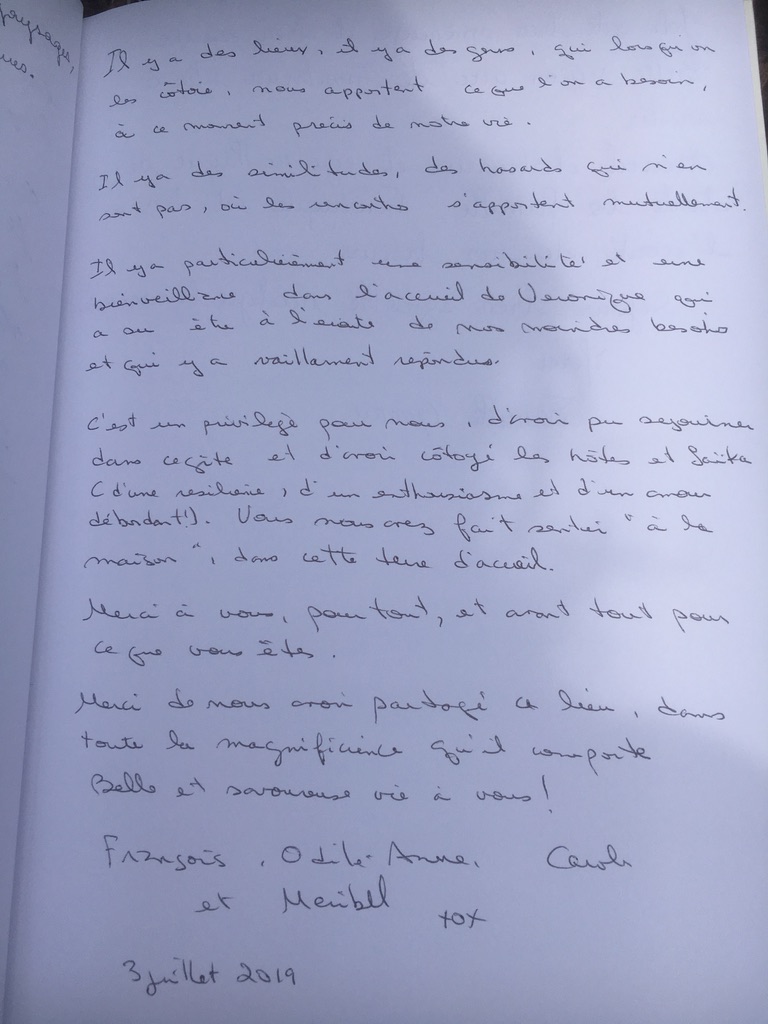 paysages,
Il y a des lieux, il y a des gens, qui lorsqu'on
les côtoie, nous apportent ce que l'on a besoin,
à ce moment précis de notre vie.
Il y a des similitudes, des hasards qui n'en
sont pas, où les rencontres s'apportent mutuellement.
Il y a particulièrement une sensibilité et une
bienveillance dans l'accueil de Veronique qui
a su être à l'écoute de nos moindres besoins
et qui y a vaillament repondus.
C'est un privilège pour nous, d'avoir pu sejourner
dans ce gîte et d'avoir côtoyé les hôtes et
(d'une resilience, d'un enthousiasme et d'un amour
débordant!). Vous nous avez fait sentir "à la
maison", dans cette terre d'accueil.
Merci à vous, pour tout, et avant tout pour
ce que vous êtes.
Merci de nous avoir partagé ce lieu, dans
toute la magnificience qu'il comporte
Belle et savoureuse vie à vous!
François, Odile-Anne,
et
xox
3 juillet 2019